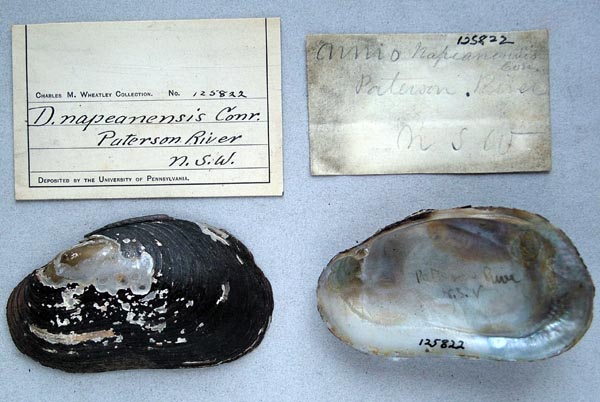 CHARLES M. WHEATLEY COLLECTION. No. 125822
D. napeanensis Conr.
Paterson River
N.S.W.
DEPOSITED BY THE UNIVERSITY OF PENNSYLVANIA.
125822
Unio napeanensis
Con.
Paterson River
N S W
Paterson River
N.S.W
125822